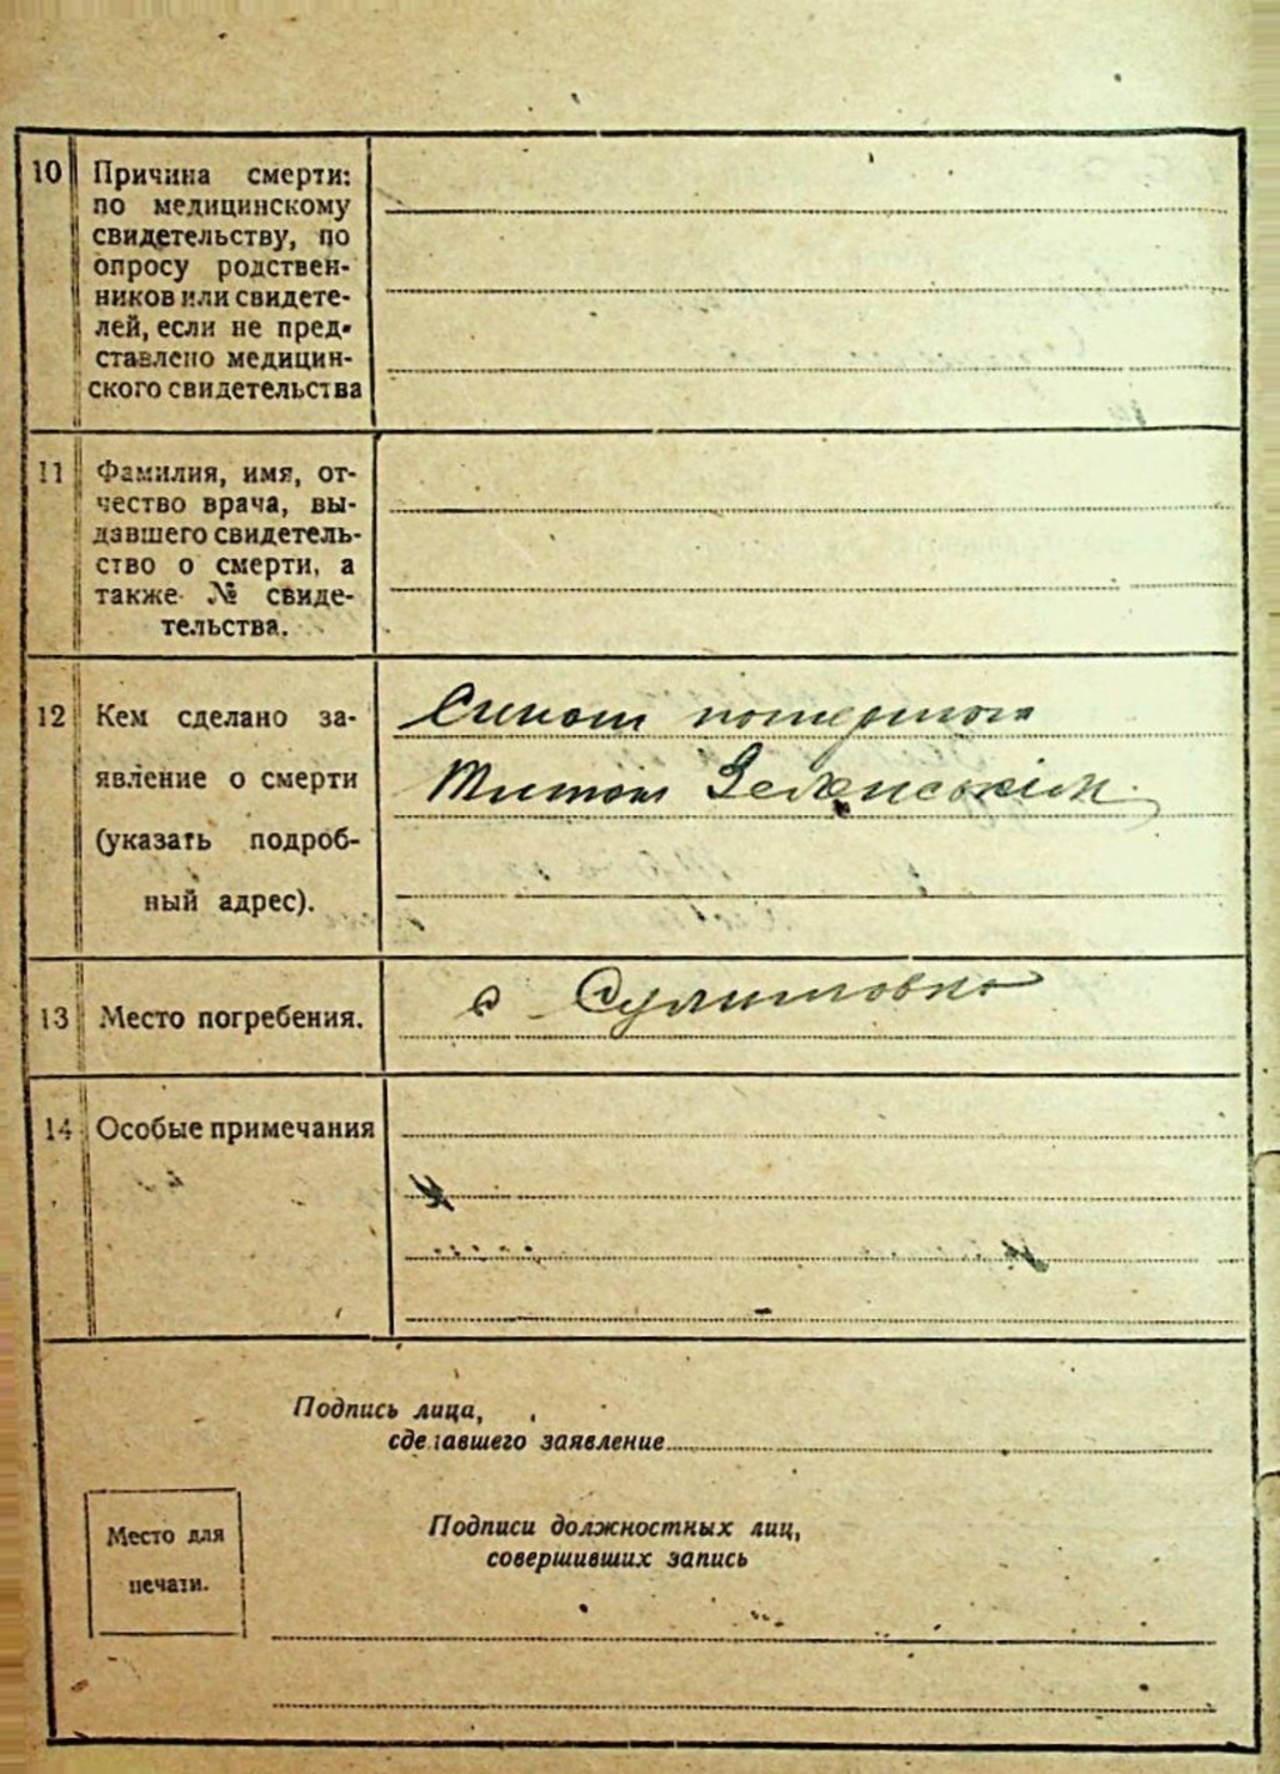 10 Причина смерти:
по медицинскому
свидетельству, по
опросу родствен-
ников или свидете-
лей, если не пред-
ставлено медицин-
ского свидетельства
11 Фамилия, имя, от-
чество врача, вы-
давшего свидетель-
ство о смерти, а
также № свиде-
тельства.
12 Кем сделано за-
явление о смерти
(указать подроб-
ный адрес).
Сином померлого
Титом Зеленським
13 Место погребения.
с Сулимовка
14 Особые примечания
Подпись лица,
сделавшего заявление
Место для
печати.
Подписи должностных лиц,
совершивших запись